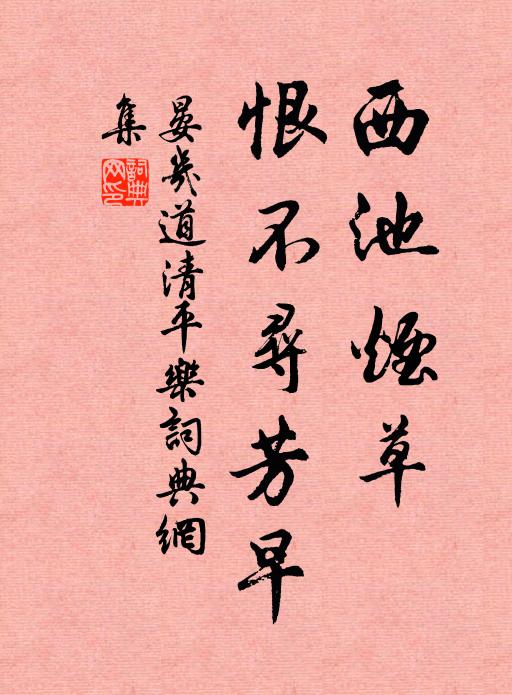 西池煙草
恨不尋芳早
晏幾道清平樂詞典網
集
詞典网印